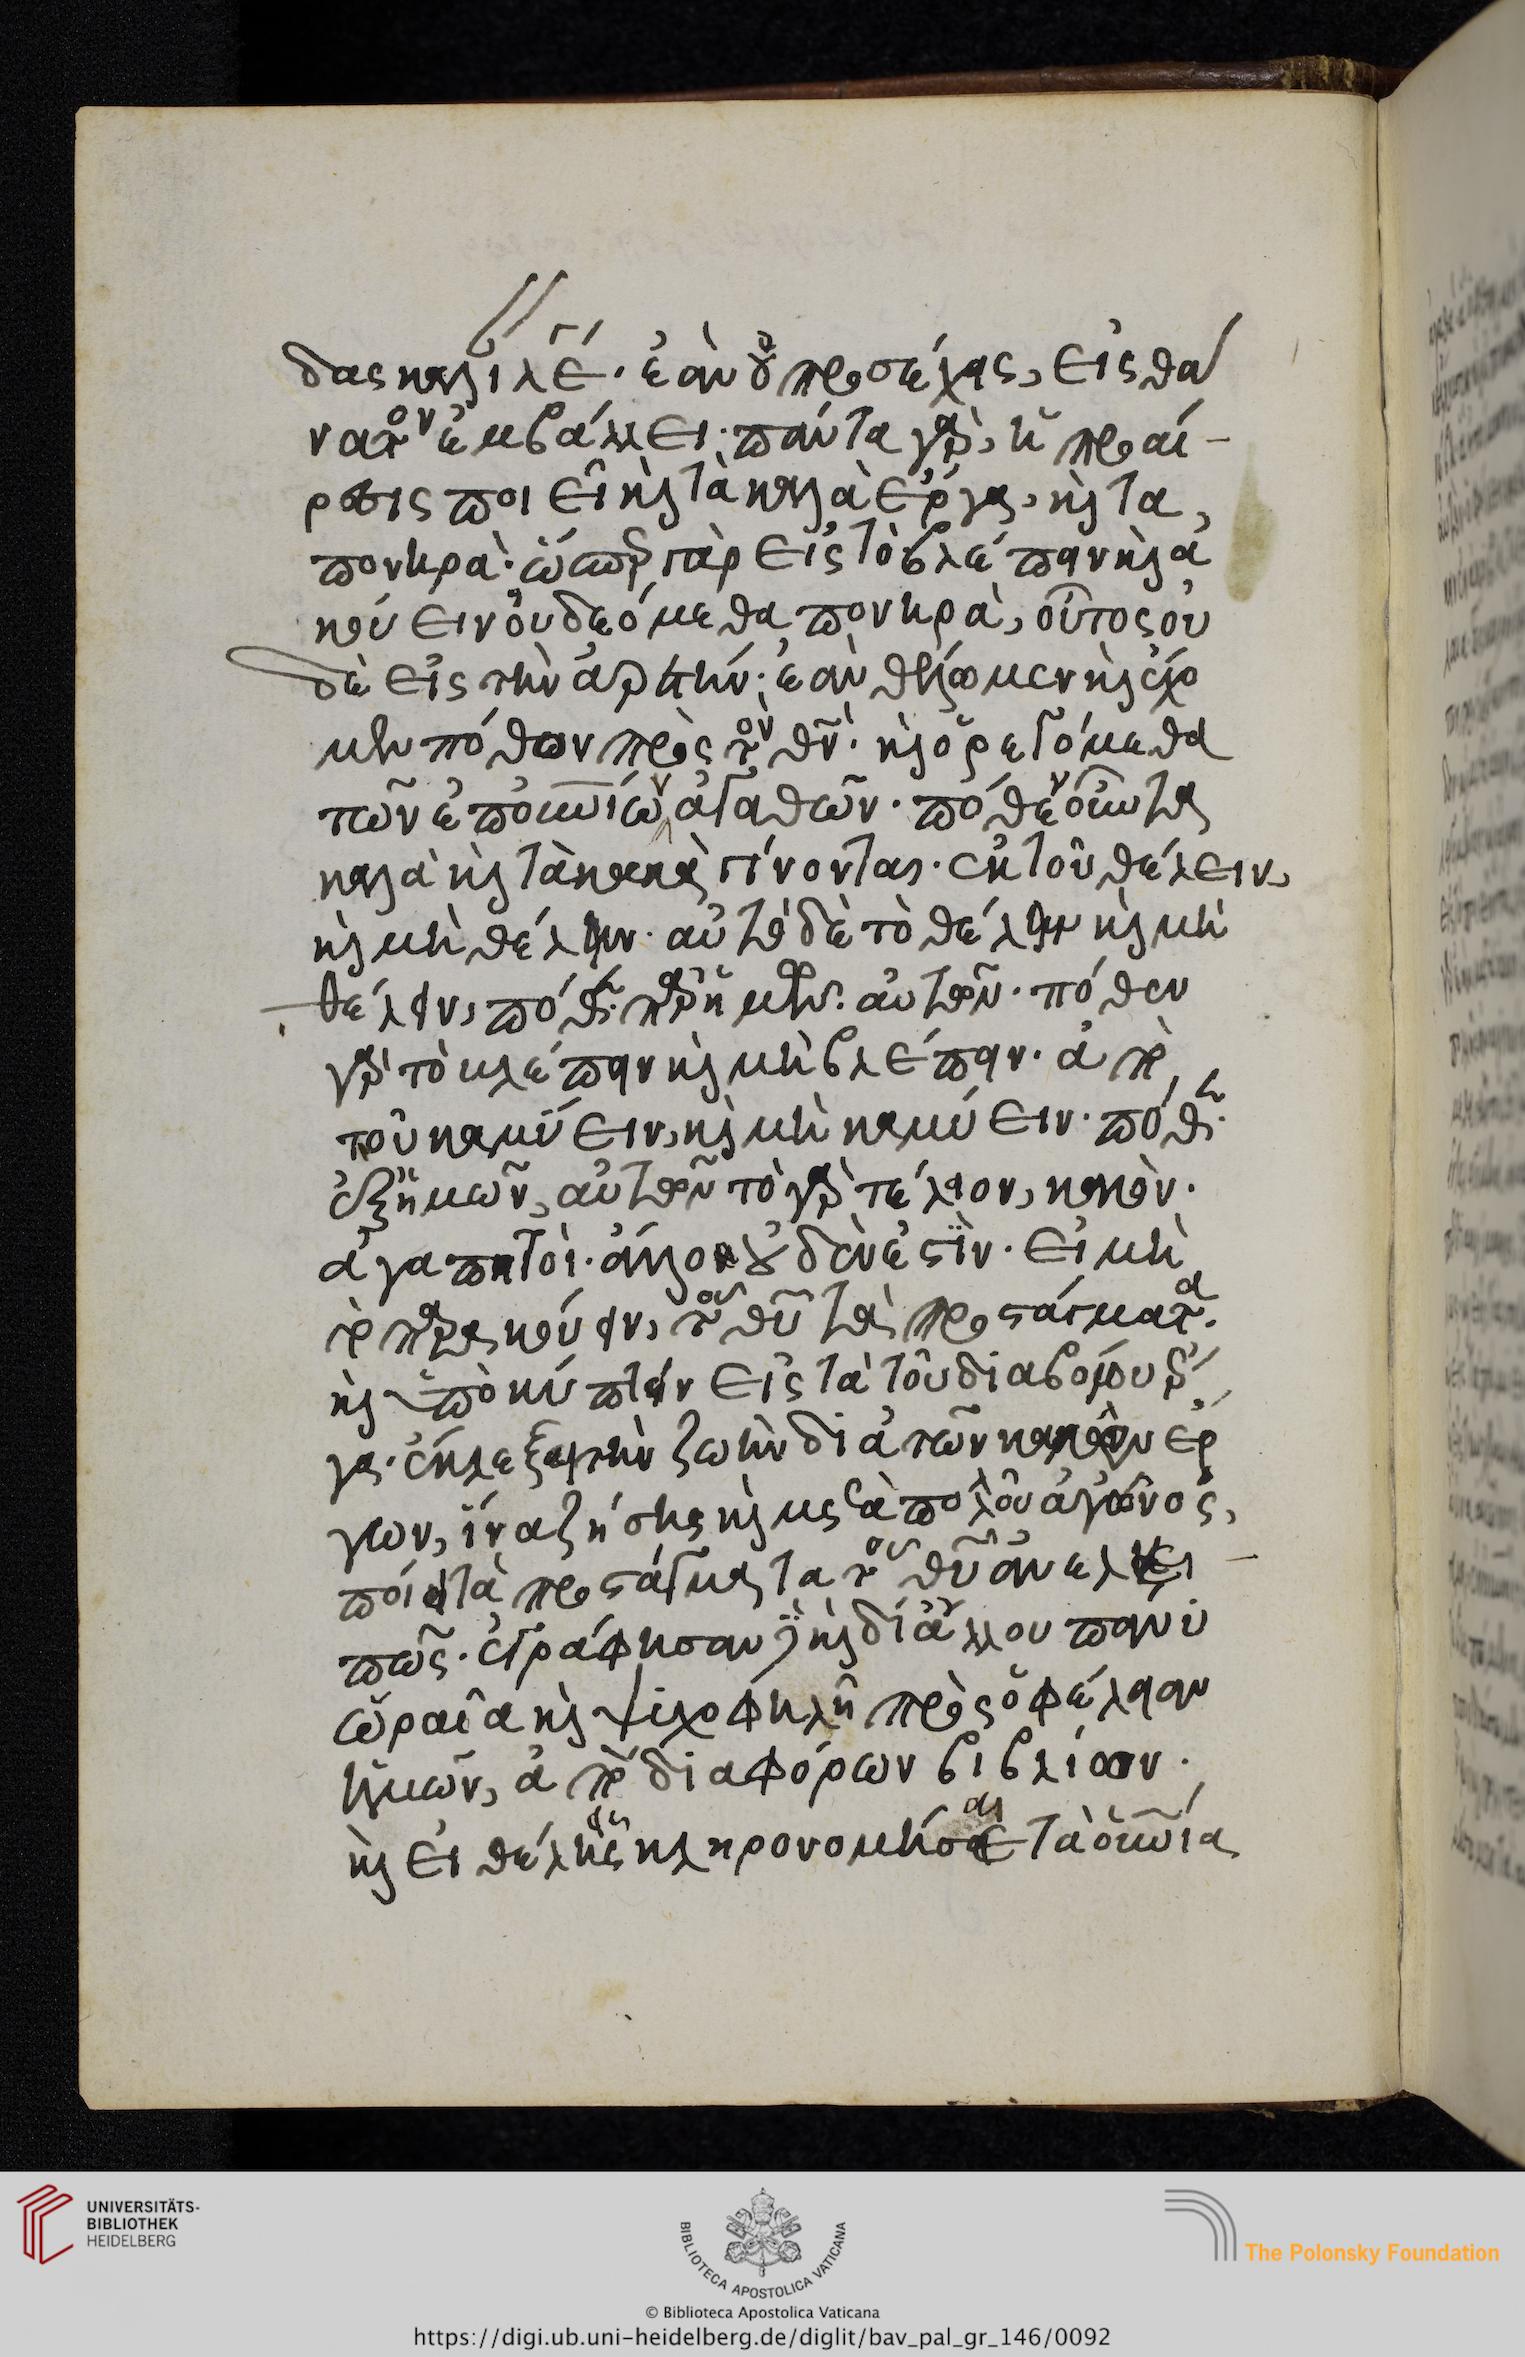 δας καλιλέ. ἐὰν οὐ προσέχης, εἰς θά
νατον ἐμβάλλει. πάντα γὰρ, ἡ προαί-
ρεσις ποιεῖ κὶ τὰ καλὰ ἔργα, κὶ τα,
πονηρὰ. ὥσπερ γὰρ εἰς τὸ βλέπειν κὶ ἀ
κούειν οὐ δεόμεθα πονηρὰ, οὗτος οὐ
δὲ εἰς τὴν ἀρετήν. ἐὰν θελήσωμεν κὶ ἔχο
μεν πόθων πρὸς τὸν θν̄. κὶ ὀρεγόμεθα
τῶν ἐπ αἰωνίων ἀγαθῶν. πόθεν
καλὰ κὶ τὰ κακὰ γίνονται. ἐκ τοῦ θέλειν,
κὶ μὴ θέλειν. αὐτὸ δὲ τὸ θέλειν κὶ μὴ
θέλειν, πόθεν. παρ ἡμῶν αὐτῶν. πόθεν
γὰρ τὸ βλέπειν κὶ μὴ βλέπειν. ἀπὸ
τοῦ καμύειν, κὶ μὴ καμύειν. πόθεν.
ἐξ ἡμῶν, αὐτῶν τὸ γὰρ τέλειον, κακὸν.
ἀγαπητοὶ. ἄλλον οὐδὲν ἐστὶν. εἰ μὴ
τὸ παρακούειν, τοῦ θῦ τὰ προστάγματα.
κὶ ὑποκύπτειν εἰς τὰ τοῦ διαβόλου ἔρ
γα. ἔκλεξαι τὴν ζωὴν διὰ τῶν καλῶν ἔρ
γων, ἵνα ζήσης κὶ μετὰ πολλοῦ ἀγῶνος,
ποίει τὰ προστάγματα τοῦ θῦ ἀνελλει
πῶς. ἐγράφησαν κὶ δι ἄλλου πανὺ
ὡραῖα κὶ ψυχοφηλῆ πρὸς ὀφέλειαν
ἡμῶν, ἀπὸ διαφόρων βιβλίων.
κὶ εἰ θέλης κληρονομῆσαι τὰ αἰώνια
UNIVERSITÄTS-
BIBLIOTHEK
HEIDELBERG
BIBLIOTECA APOSTOLICA VATICANA
The Polonsky Foundation
© Biblioteca Apostolica Vaticana
https://digi.ub.uni-heidelberg.de/diglit/bav_pal_gr_146/0092